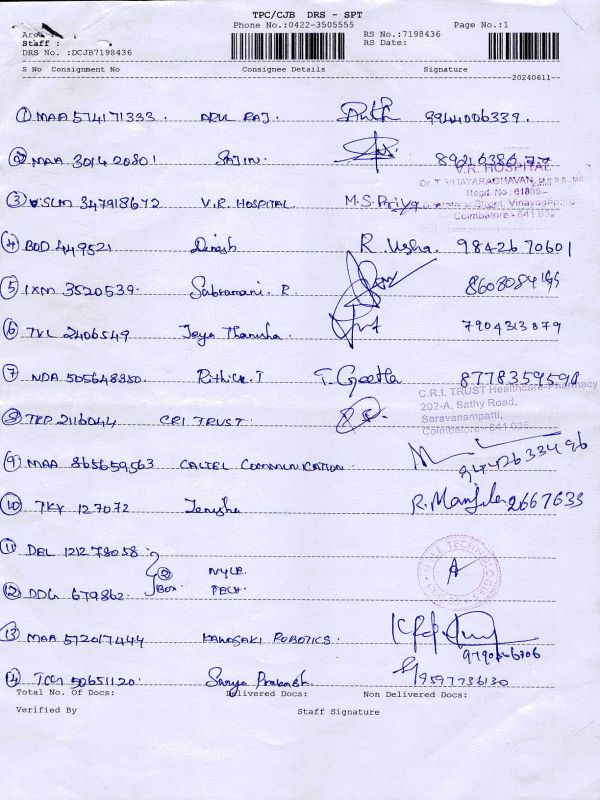 TPC/CJB DRS - SPT
Phone No.:0422-3505555 Page No.:1
Area :
Staff : RS No.:7198436
DRS No. :DCJB7198436 RS Date:
S No Consignment No Consignee Details Signature
20240611
① MAA 574171333 ARUL RAJ 9944006339.
② MAA 301420801
V.R. HOSPITAL
Dr. T. VIJAYARAGHAVAN, M.S.
Regd. No. 01865
③ SLM 347918672 V.R. HOSPITAL M.S. Priya Vinayagapuram
Coimbatore - 641 035
④ BOD 449521 Dinesh R. Usha. 9842670601
⑤ IXM 3520539. Subramani. R.
⑥ TVL 2406549 Jeya Thanusha. 7904313879
⑦ NDA 505648350. Rithick. T T. Geetha 8778359590
C.R.I. TRUST Healthcare-Pharmacy
202-A, Sathy Road,
Saravanampatti,
Coimbatore - 641 035
⑧ TRP 2116044 CRI TRUST.
⑨ MAA 865659563 CALTEL COMMUNICATION. 9442633496
⑩ TKY 127072 R. Manjula 2667633
⑪ DEL 121278058
② BOX NYLE TECH.
⑫ DDG 679862.
TECHNOLOGIES
⑬ MAA 572017444 KAWASAKI ROBOTICS.
⑭ 50651120. Surya Prakash 9597736130
Total No. Of Docs: Delivered Docs: Non Delivered Docs:
Verified By Staff Signature